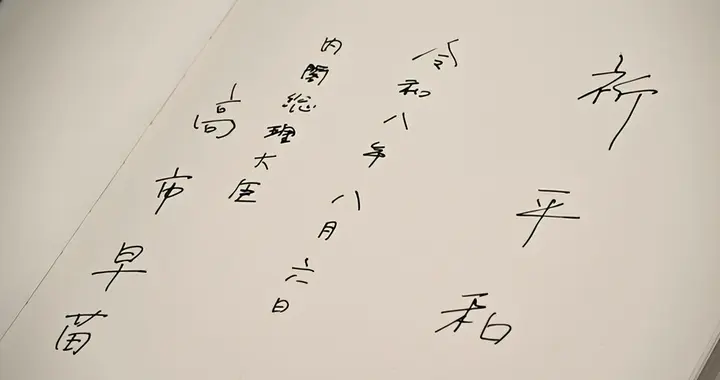 祈平和
令和八年八月六日
内閣総理大臣
高市早苗